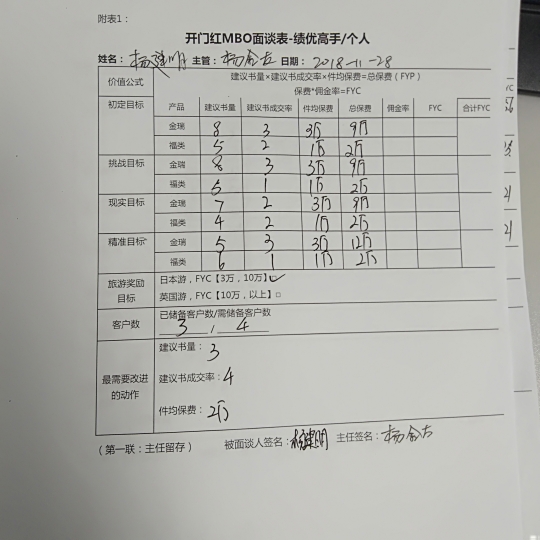 附表1：
开门红MBO面谈表-绩优高手/个人
姓名：杨建明 主管：杨 日期：2018-11-28
价值公式 建议书量×建议书成交率×件均保费=总保费（FYP）
保费*佣金率=FYC
初定目标 产品 建议书量 建议书成交率 件均保费 总保费 佣金率 FYC 合计FYC
金瑞 8 3 3万 9万
福类 5 2 1万 2万
挑战目标 金瑞 8 3 3万 9万
福类 5 1 1万 2万
现实目标 金瑞 7 2 3万 9万
福类 4 2 1万 2万
精准目标* 金瑞 5 3 3万 12万
福类 6 1 1万 2万
旅游奖励目标 日本游，FYC【3万，10万】✓
英国游，FYC【10万，以上】□
客户数 已储备客户数/需储备客户数
3 / 4
最需要改进的动作 建议书量：3
建议书成交率：4
件均保费：2万
（第一联：主任留存） 被面谈人签名：杨建明 主任签名：杨